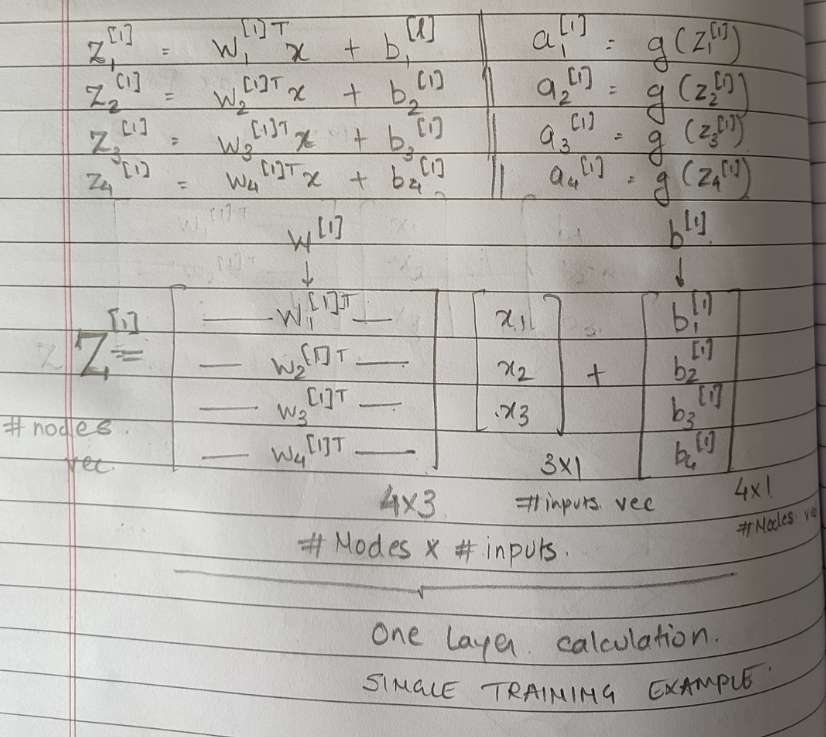 z₁^[1] = w₁^[1]T x + b₁^[1] || a₁^[1] = g(z₁^[1])
z₂^[1] = w₂^[1]T x + b₂^[1] || a₂^[1] = g(z₂^[1])
z₃^[1] = w₃^[1]T x + b₃^[1] || a₃^[1] = g(z₃^[1])
z₄^[1] = w₄^[1]T x + b₄^[1] || a₄^[1] = g(z₄^[1])
W^[1] b^[1]
↓ ↓
Z^[1] = [ — w₁^[1]T — [ x₁ ] [ b₁^[1]
— w₂^[1]T — x₂ + b₂^[1]
— w₃^[1]T — x₃ b₃^[1]
— w₄^[1]T — ] b₄^[1] ]
# nodes
vec
4x3 3x1 4x1
# inputs vec # Nodes
# Nodes x # inputs.
One Layer calculation.
SINGLE TRAINING EXAMPLE